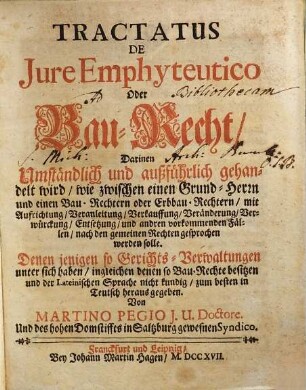 TRACTATUS
DE
Jure Emphyteutico
Oder
Ad Bibliothecam
Bau-Recht/
S. Mich: Darinen Arch:
Umständlich und außführlich gehan-
delt wird / wie zwischen einen Grund-Herrn
und einen Bau-Rechtern oder Erbbau-Rechtern / mit
Auffrichtung / Veranleitung / Verkauffung / Veränderung / Ver-
würckung / Entsetzung / und andern vorkommenden Fäl-
len / nach den gemeinen Rechten gesprochen
werden solle.
Denen jenigen so Gerichts-Verwaltungen
unter sich haben / ingleichen denen so Bau-Rechte besitzen
und der Lateinischen Sprache nicht kundig / zum besten in
Teutsch heraus gegeben.
Von
MARTINO PEGIO J. U. Doctore.
Und des hohen Domstifftes in Saltzburg gewesnen Syndico.
Franckfurt und Leipzig /
Bey Johann Martin Hagen / M. DCC XVII.